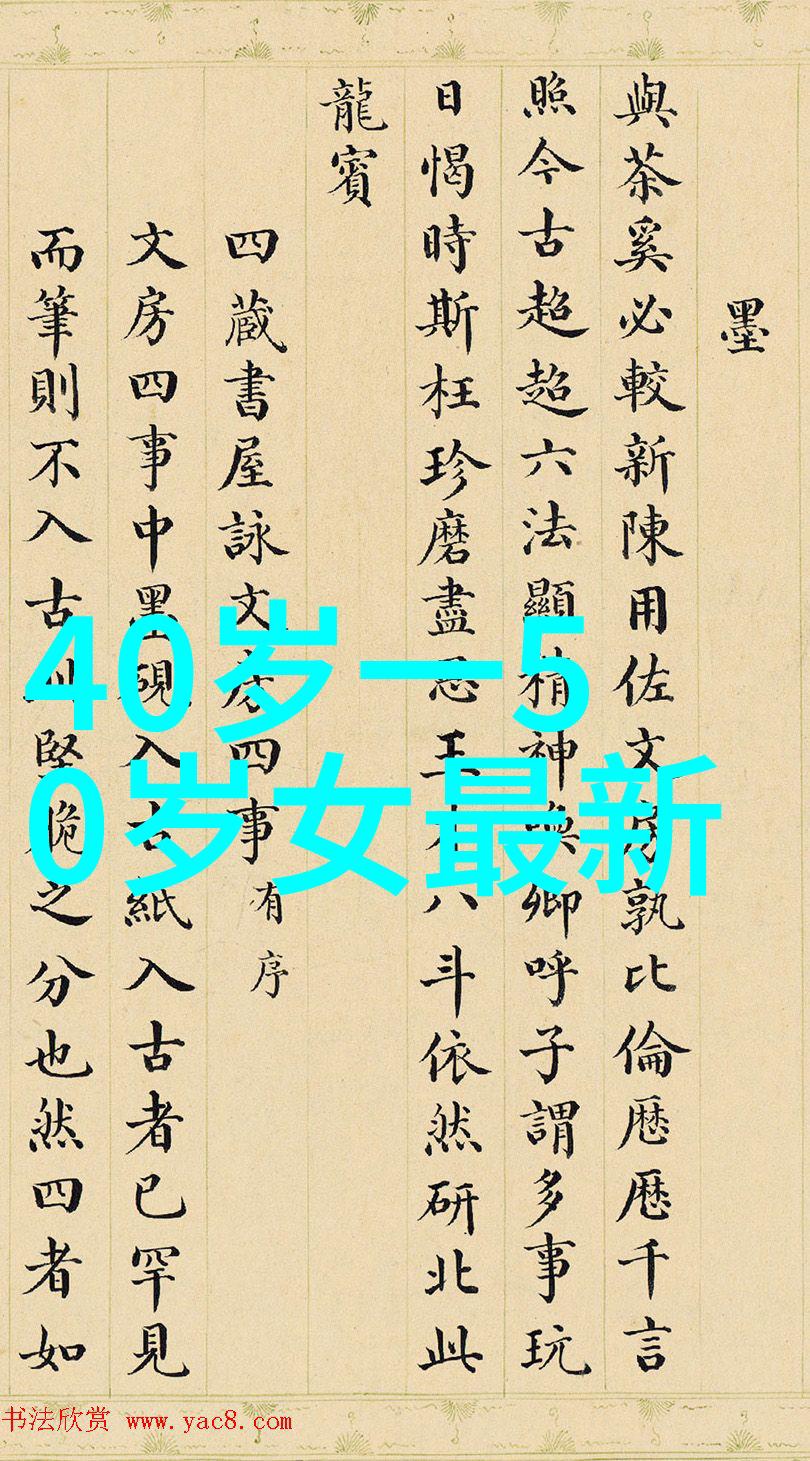 墨
與茶奚必較新陳用佐文房孰比倫厯厯千言
照今古超超六法顯精神喚卿呼子謂多事玩
日愒時斯枉珍磨盡思王才八斗依然研北此
龍賓
四蔵書屋詠文房四事有序
文房四事中墨硯入古紙入古者已罕見
而筆則不入古則堅脆之分也然四者如
40岁一5
0岁女最新
书法欣赏 www.yac8.com